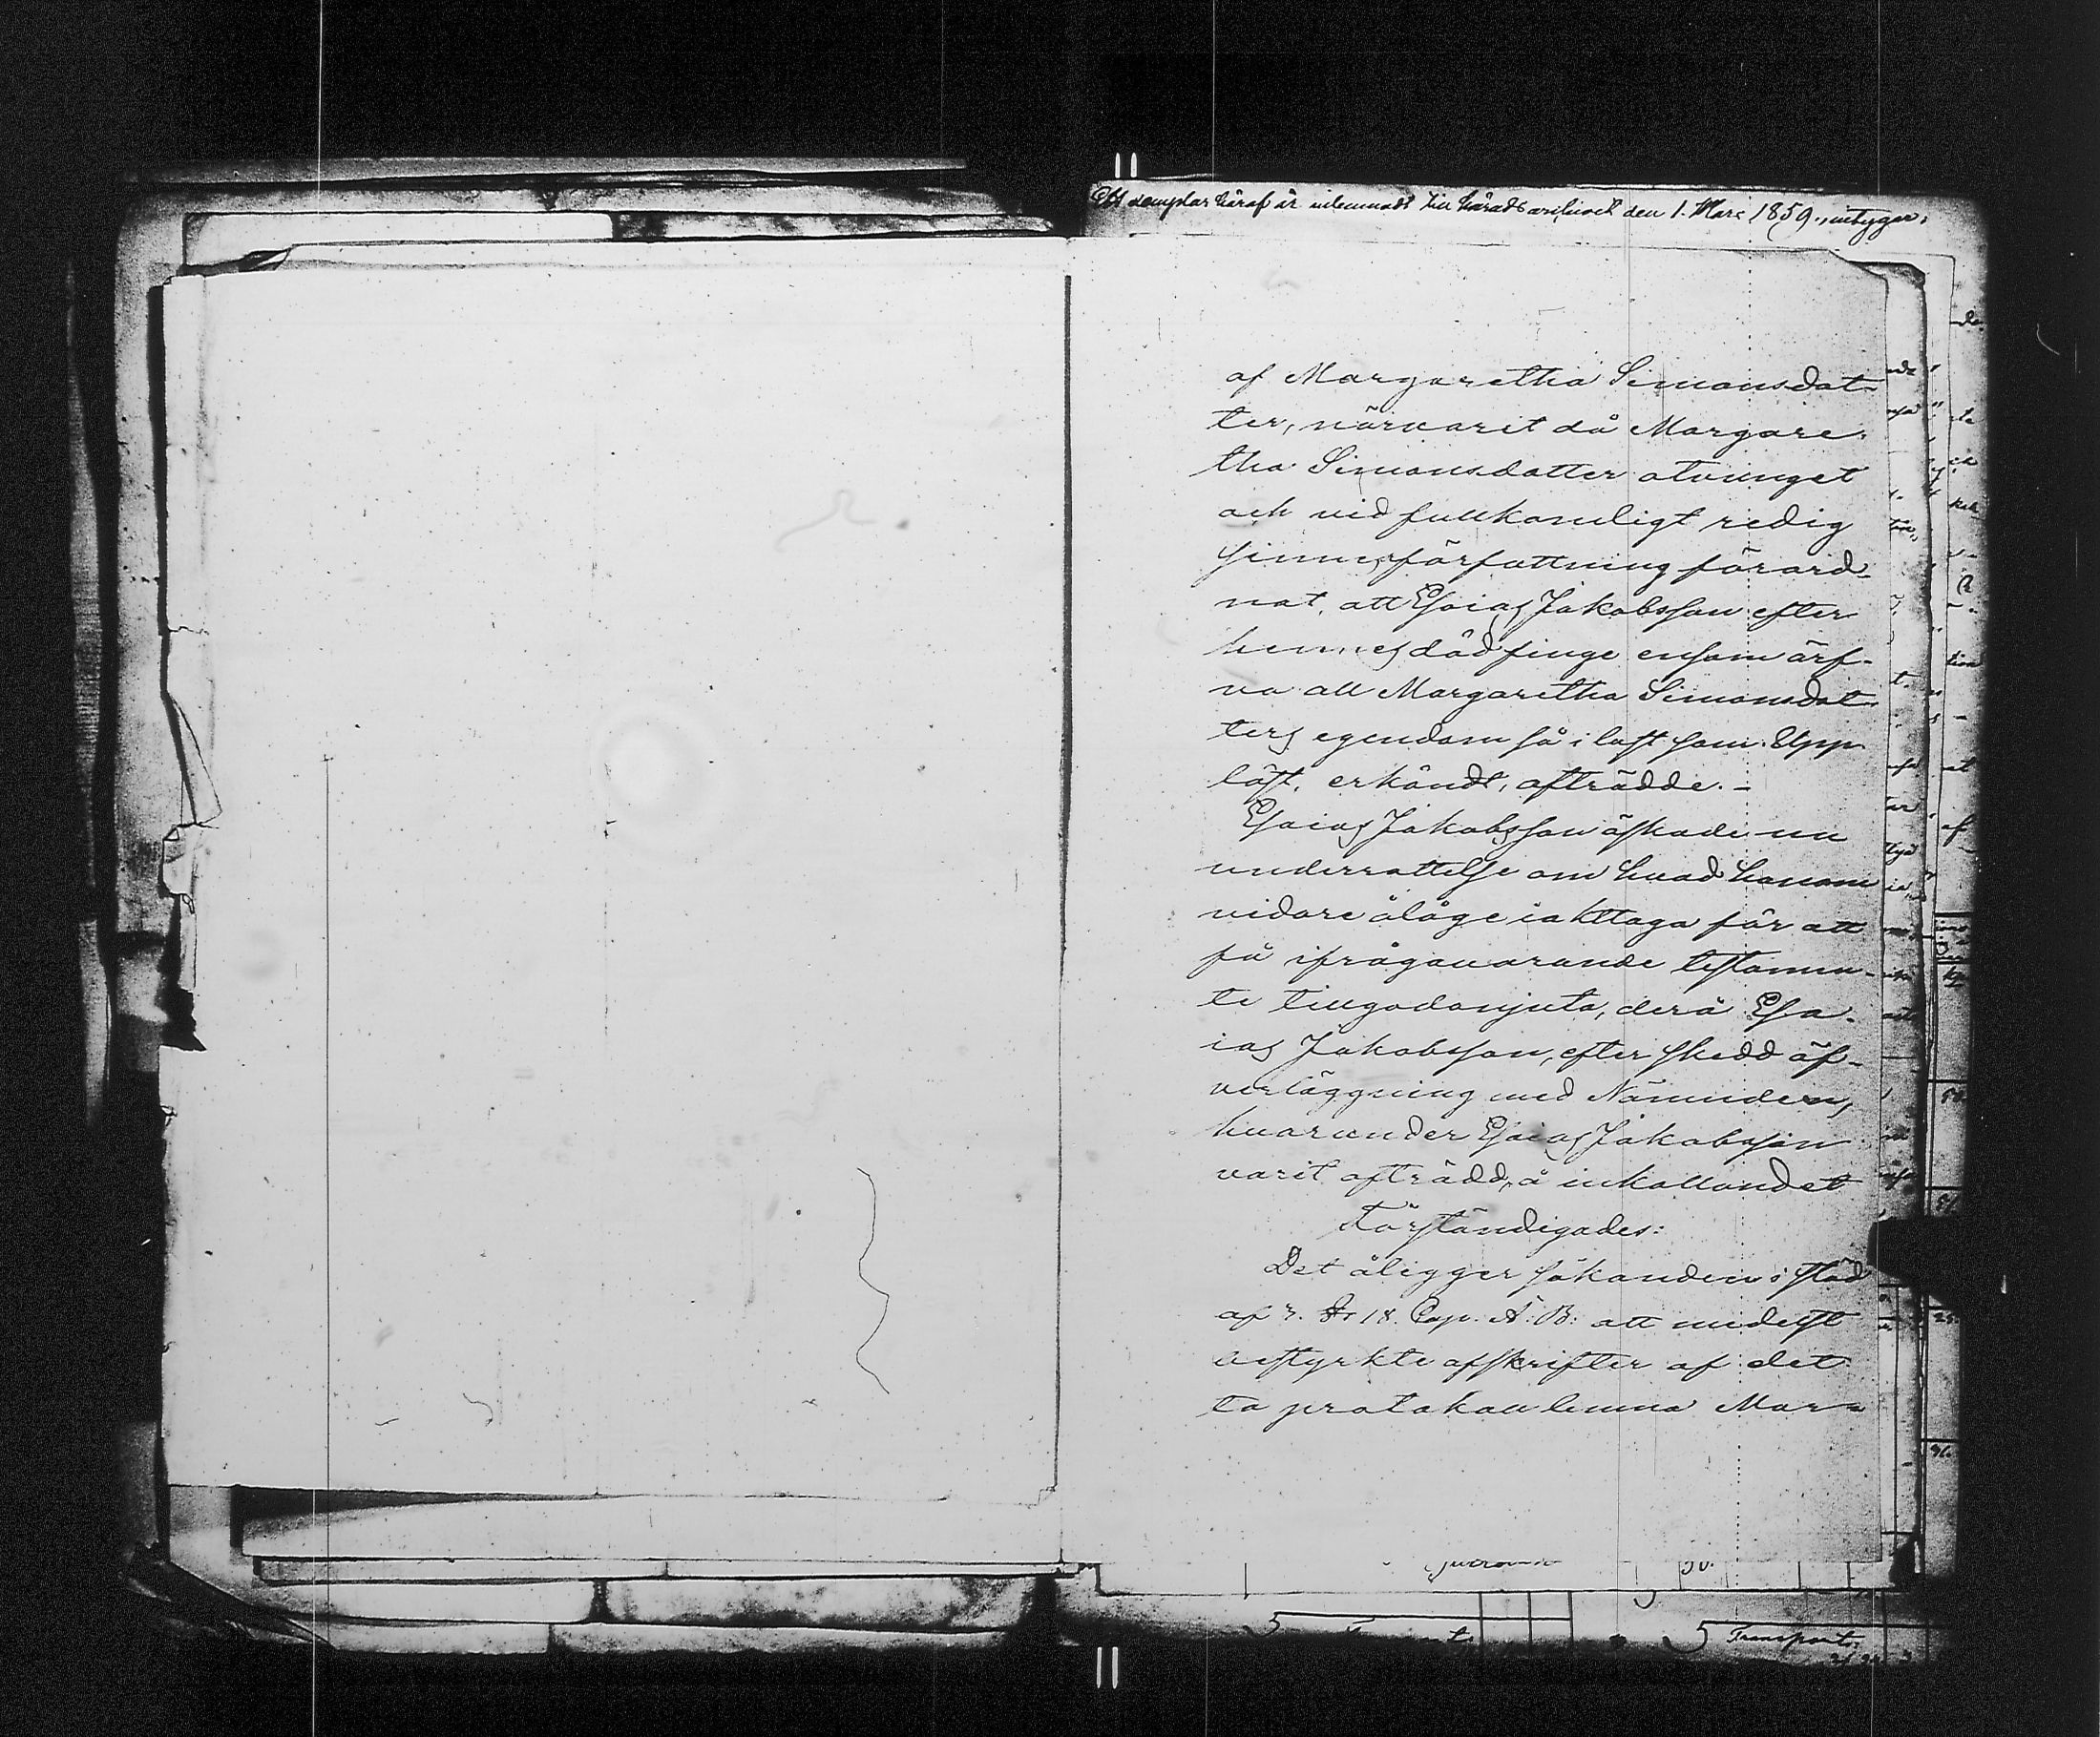 Ett exemplar häraf är inlemnadt till häradsarkivet den 1. Mars 1859., intygar,
af Margaretha Simonsdat-
ter, närvarit då Margare-
tha Simonsdatter otvunget
och vid fullkomligt redig
sinnesförfattning förord-
nat, att Esaias Jakobsson efter
hennes död finge ensam ärf-
va all Margaretha Simonsdat-
ters egendom så i löst som. Upp-
läst, erkändt, afträdde. –
Esaias Jakobsson äskade nu
underrättelse om hvad honom
vidare ålåge iakttaga för att
få ifrågavarande testamen-
te tillgodonjuta, derå Esa-
ias Jakobsson, efter skedd öf-
verläggning med Nämnden,
hvarunder Esaias Jakobsson
varit afträdd, å inkallandet
Förständigades:
Det åligger sökanden i stöd
af 18. Cap. Ä. B. att medelst
bestyrkte afskrifter af det-
ta protokoll lemna Mar-
50.
Transport